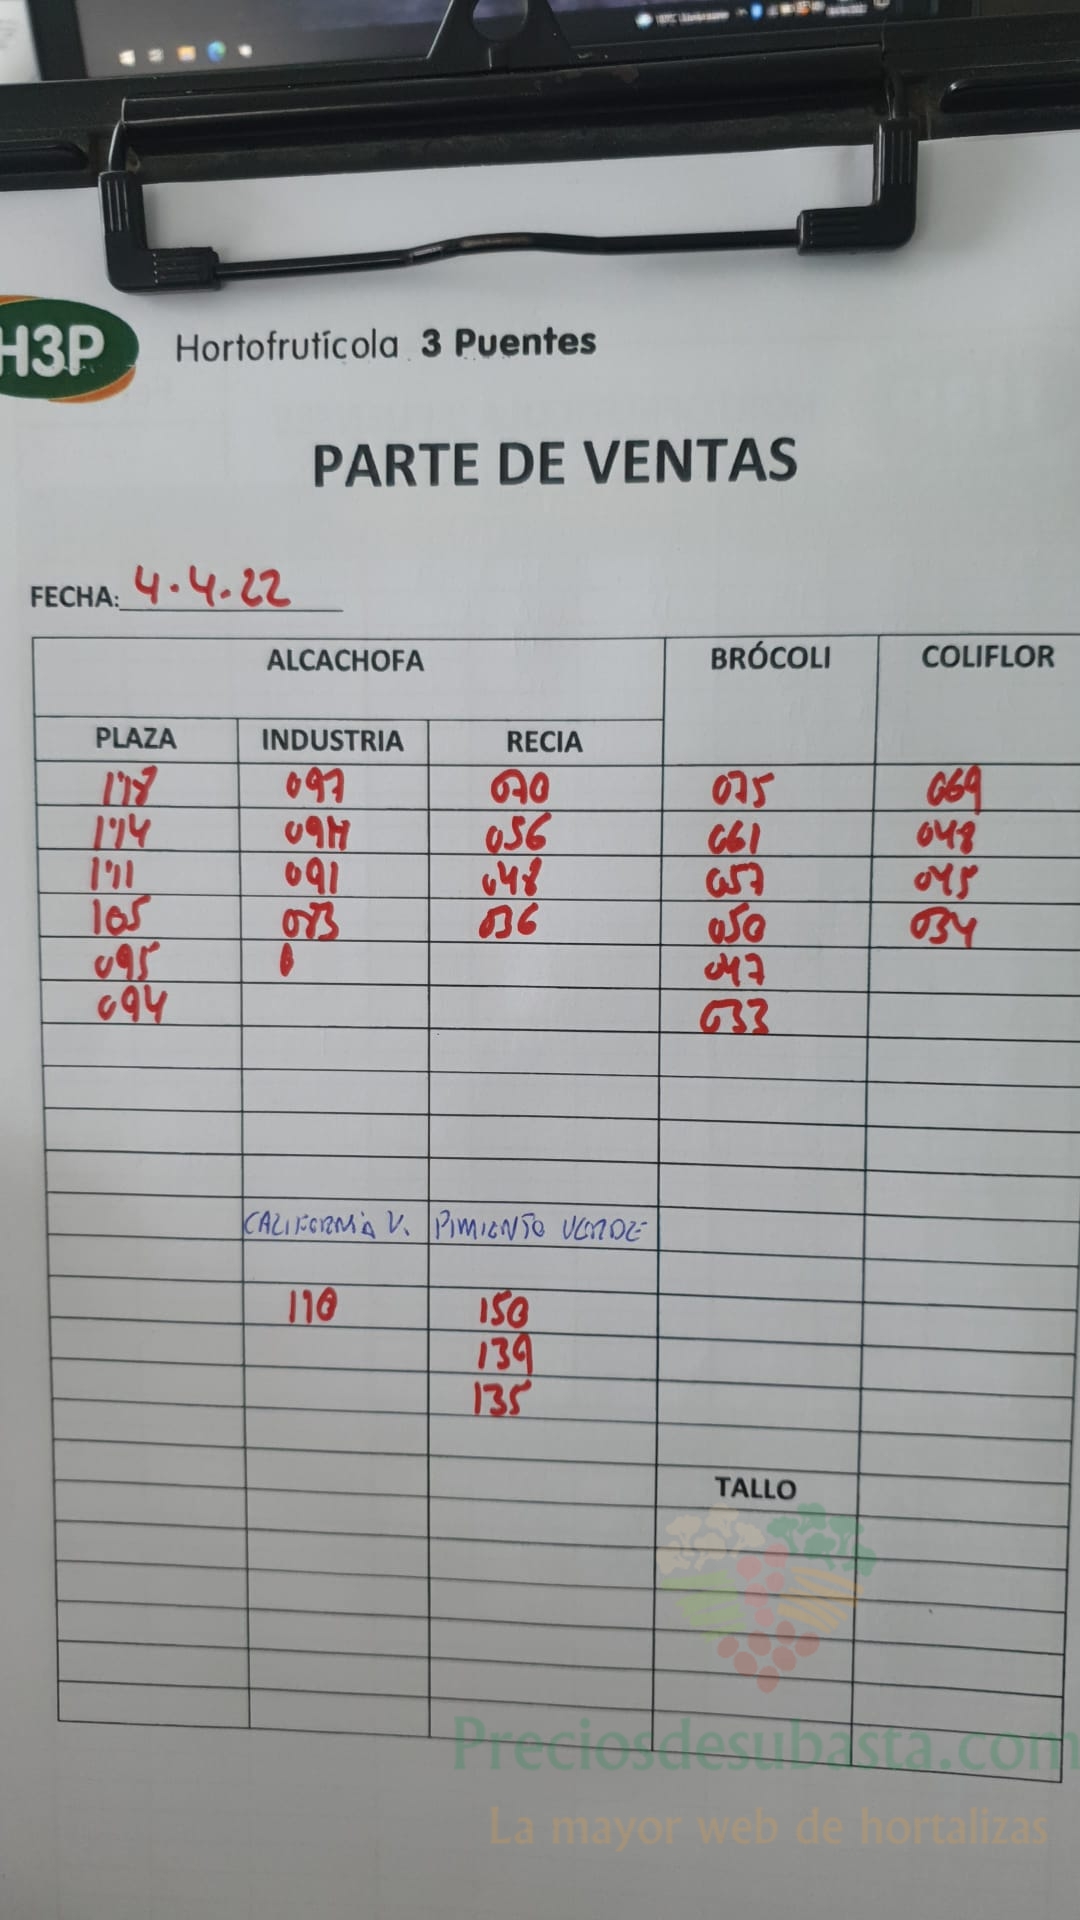 H3P Hortofrutícola 3 Puentes
PARTE DE VENTAS
FECHA: 4.4.22
ALCACHOFA BRÓCOLI COLIFLOR
PLAZA INDUSTRIA RECIA
1'18 097 070 075 069
1'14 094 056 061 048
1'11 091 048 057 045
105 083 036 050 034
095 047
094 033
CALIFORNIA V. PIMIENTO VERDE
110 150
139
135
TALLO
Preciosdesubasta.com
La mayor web de hortalizas